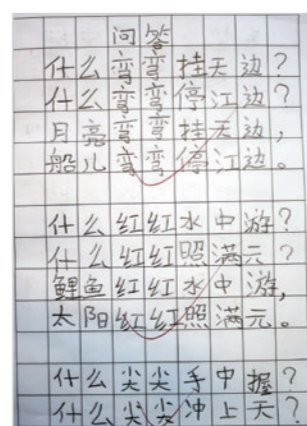 问答
什么弯弯挂天边？
什么弯弯停江边？
月亮弯弯挂天边，
船儿弯弯停江边。
什么红红水中游？
什么红红照满元？
鲤鱼红红水中游，
太阳红红照满元。
什么尖尖手中握？
什么尖尖冲上天？